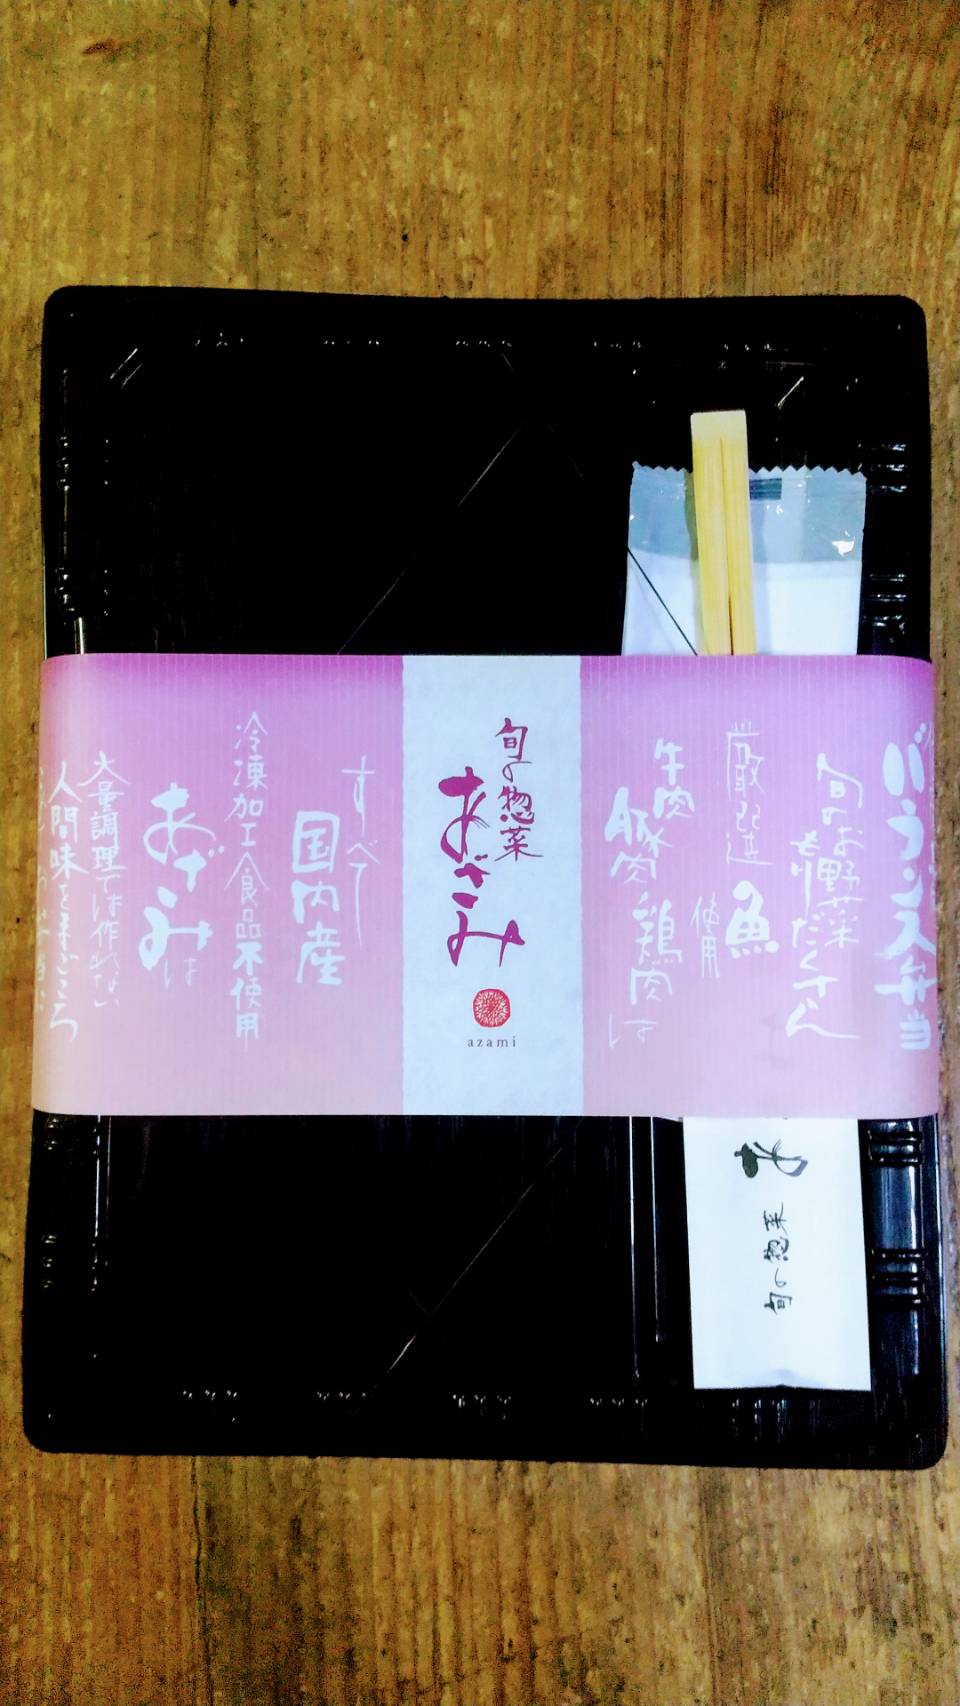 バランス弁当
旬のお野菜
もりだくさん
厳選
魚
使用
牛肉
豚肉
鶏肉
は
旬の惣菜
あざみ
azami
すべて
国内産
冷凍加工食品不使用
あざみは
大量調理では作れない
人間味とまごころ
旬の惣菜
あ